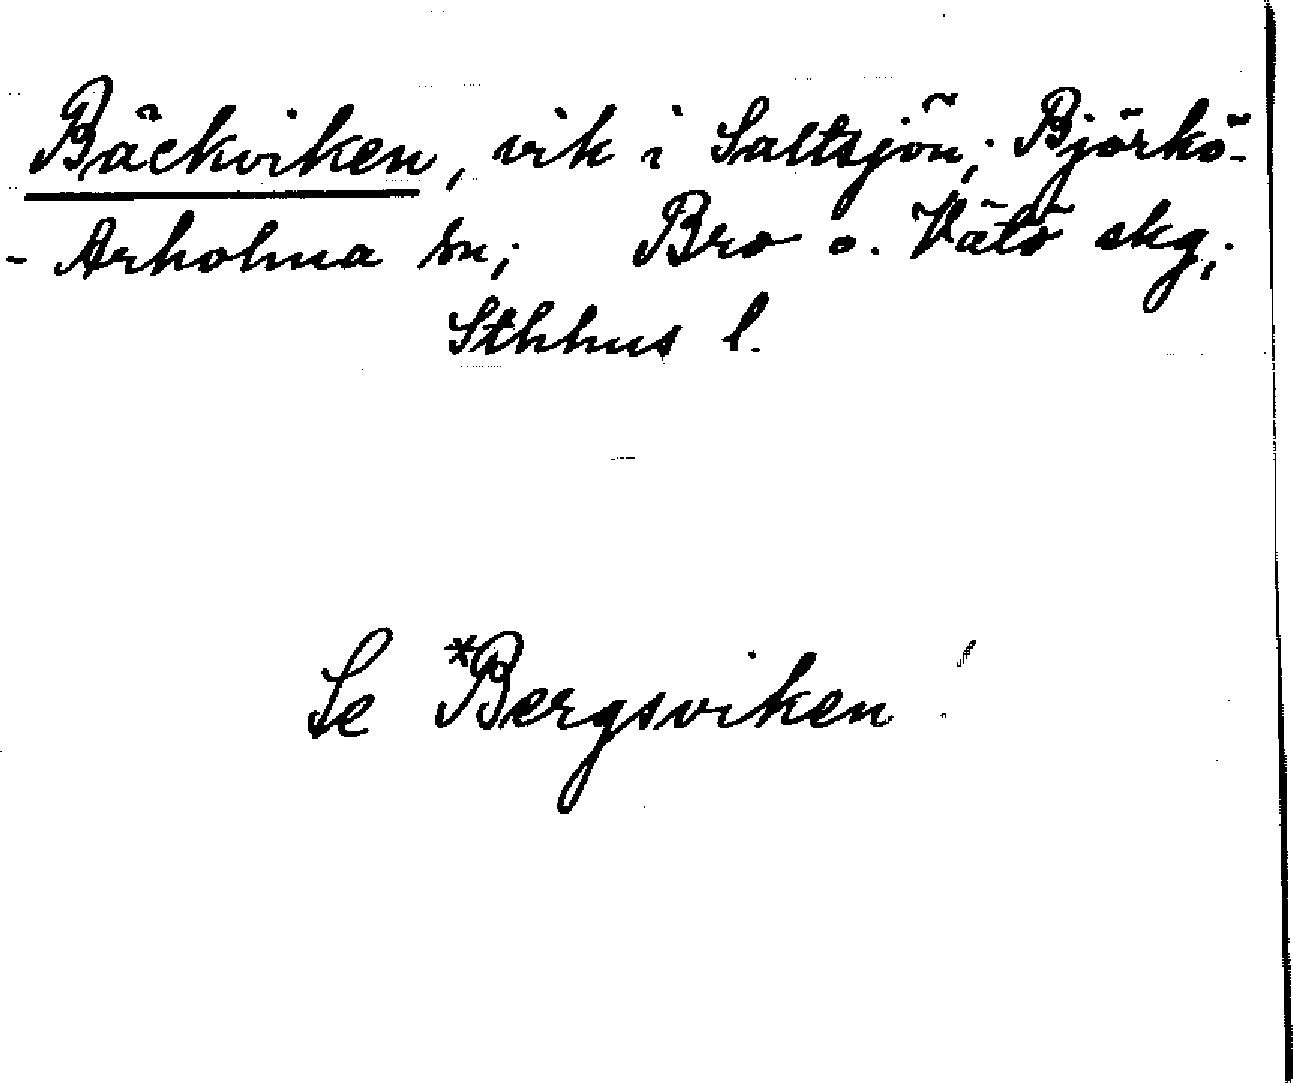 Bäckviken, vik i Saltsjön; Björkö-
- Arholma sn; Bro o. Vätö skg;
Sthhus l.
Se *Bergsviken!